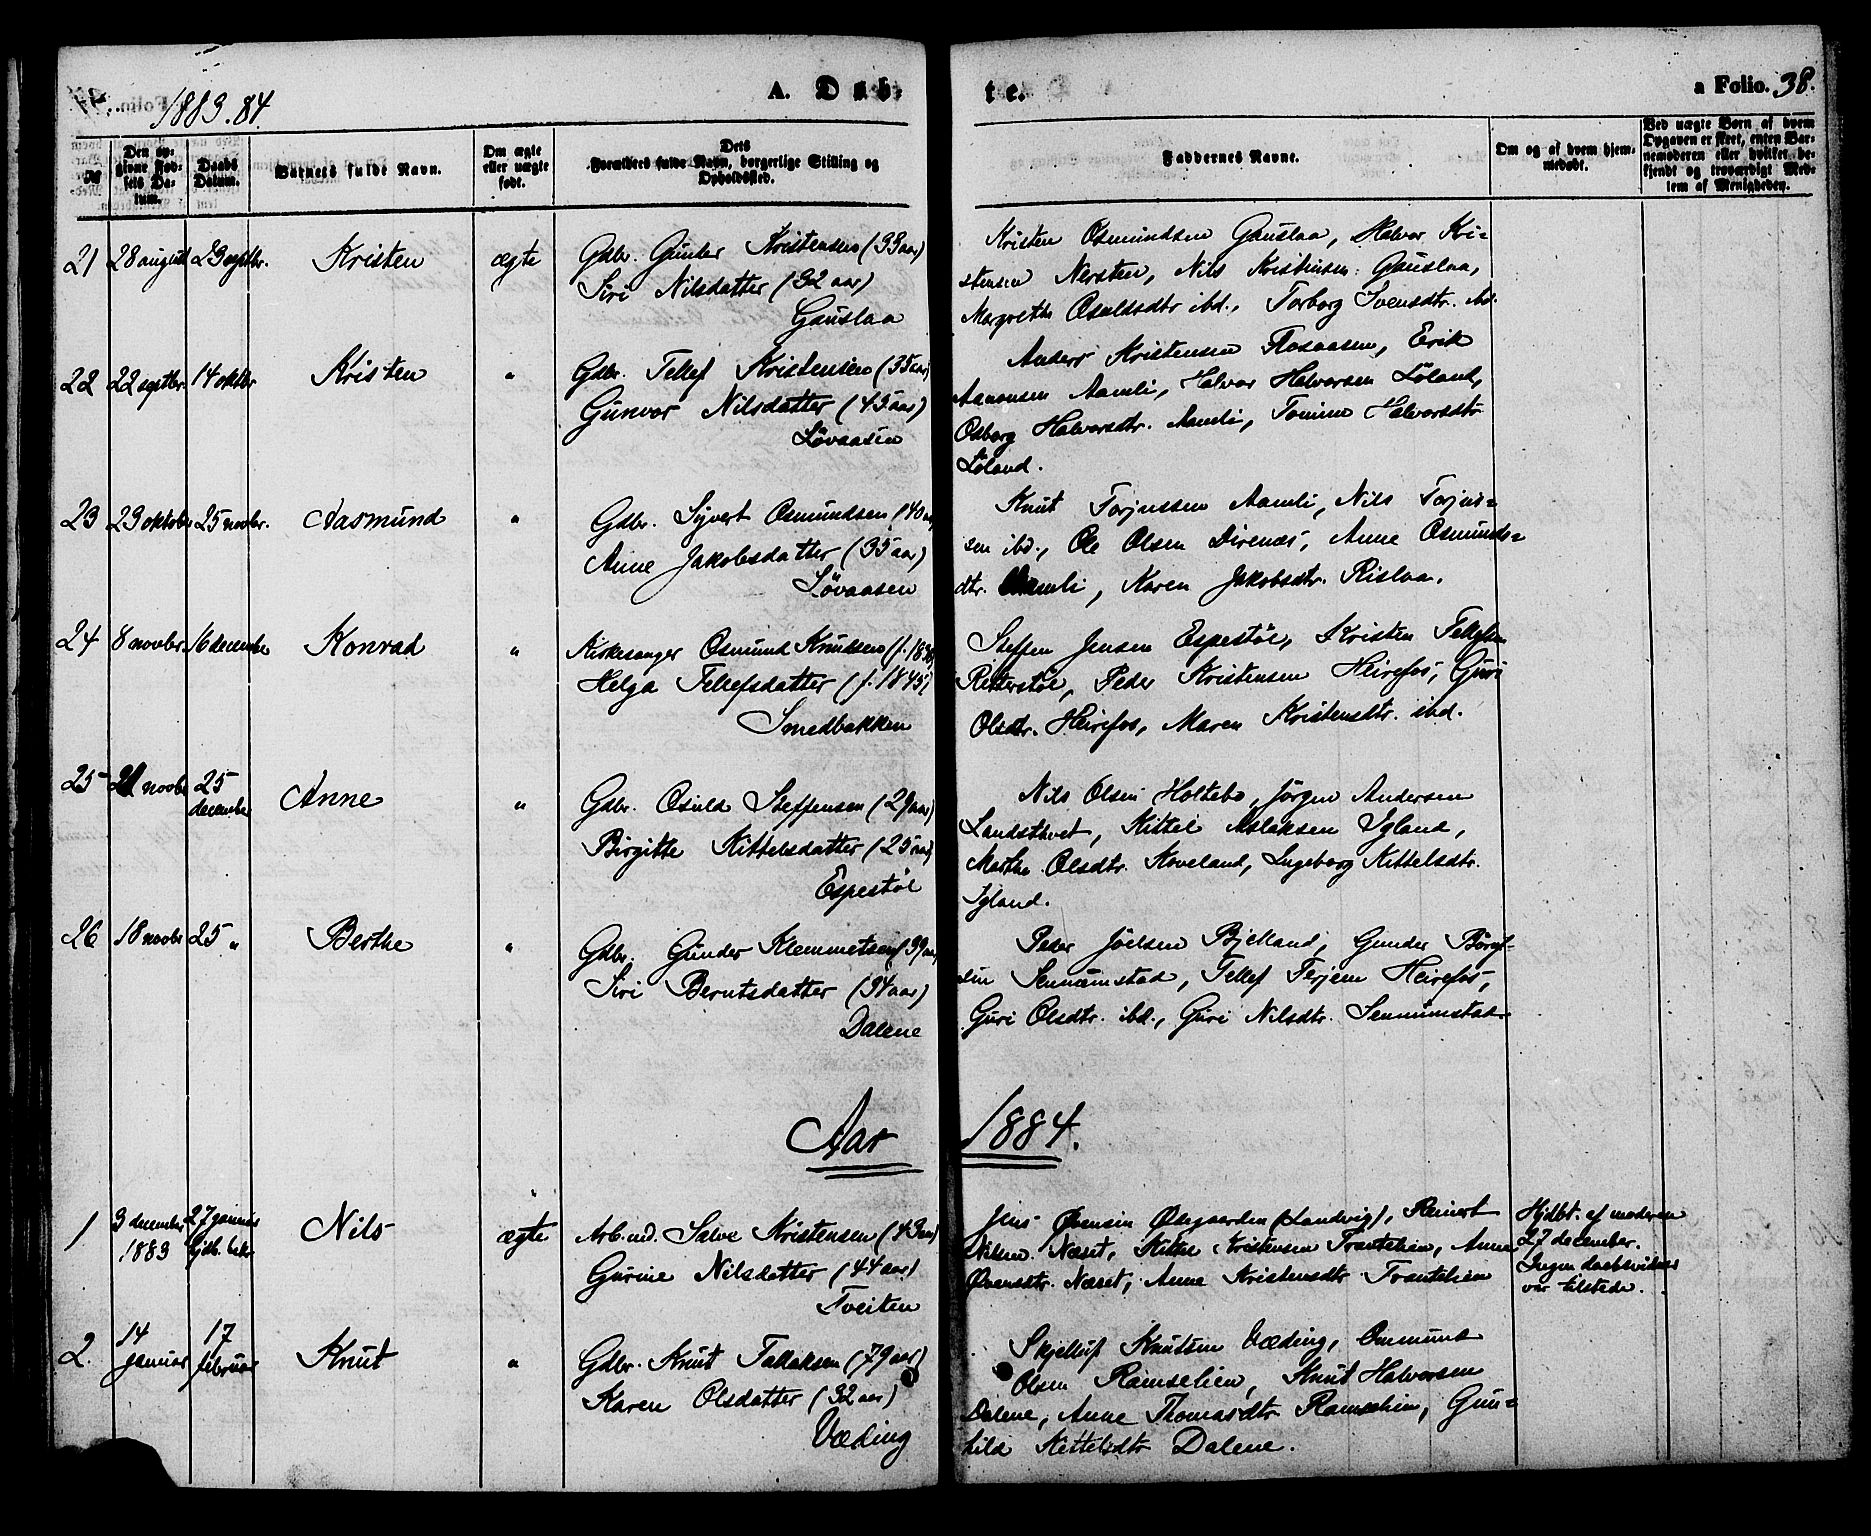 1883.84.
A. Døb-
te.
a Folio. 38.
№
Den op-
givne Fød-
sels Da-
tum.
Daabs
Datum.
Barnets fulde Navn.
Om ægte
eller uægte
født.
Dets
Forældres fulde Navn, borgerlige Stilling og
Opholdssted.
Faddernes Navne.
Om og af hvem hjem-
medøbt.
Ved uægte Børn af hvem
Opgaven er skeet, enten Bar-
nemoderen eller hvilket be-
kjendt og troværdigt Med-
lem af Menigheden.
21 28 august 23 septbr. Kristen ægte
Gdbr. Gunder Kristensen (33 aar)
Siri Nilsdatter (32 aar)
Gauslaa
Kristen Osmundsen Gauslaa, Halvor Kri-
stensen Nersten, Nils Kristensen Gauslaa,
Margrethe Osuldsdtr ibd., Torborg Svensdtr. ibd.
22 22 septbr. 14 oktbr Kristen "
Gdbr. Tellef Kristensen (35 aar)
Gunvor Nilsdatter (43 aar)
Løvaasen
Anders Kristensen Aasen, Erik
Aanonsen Aamli, Halvor Halvorsen Løland,
Osborg Halvorsdtr. Aamli, Tomine Halvorsdtr
Løland.
23 23 oktobr 25 novbr. Aasmund "
Gdbr. Syvert Osmundsen (40 aar)
Anne Jakobsdatter (35 aar)
Løvaasen
Knut Torjussen Aamli, Nils Torjus-
sen ibd., Ole Olsen Direnæs, Anne Osmunds-
dtr. Aamli, Karen Jakobsdtr. Rislaa.
24 8 novbr. 16 decembr Konrad "
Kirkesanger Osmund Knutsen (f. 1838)
Helga Tellefsdatter (f. 1845)
Smedbakken
Steffen Jensen Espestøl, Kristen Tellefsen
Retterstøl, Peder Kristensen Heirefos, Guri
Olsdtr. Heirefos, Maren Kristensdtr. ibd.
25 21 novbr 25
decembr
Anne "
Gdbr. Osuld Steffensen (29 aar)
Birgitte Kittelsdatter (25 aar)
Espestøl
Nils Olsen Holtebo, Jørgen Andersen
Landsthvet, Kittel Aslaksen Igland,
Marthe Olsdtr. Hoveland, Ingeborg Kittelsdtr.
Igland.
26 18 novbr 25 " Berthe "
Gdbr. Gunder Klemmetsen (39 aar)
Siri Berntsdatter (34 aar)
Dalene
Peder Joelsen Bjelland, Gunder Børuf-
sen Sennumstad, Tellef Terjesen Heirefos,
Guri Olsdtr. ibd., Guri Nilsdtr. Sennumstad.
Aar 1884.
1 3 december
1883
27 januar
hjdb. bekr.
Nils ægte
Arb.md. Salve Kristensen (43 aar)
Gurine Nilsdatter (44 aar)
Tveiten
Jens Øvensen Ødegaarden (Landvig), Reinert
Nilsen Næset, Kittel Kristensen Trantelien, Anne
Øvensdtr. Næset, Anne Kristensdtr Trantelien
Hjdbt. af moderen
27 december.
Ingen daabsvidner
var tilstede.
2. 14
januar
17
februar
Knut "
Gdbr. Knut Tallaksen (79 aar)
Karen Olsdatter (32 aar)
Væding
Skjelluf Knutsen Væding, Ommund
Olsen Ramselien, Knut Halvorsen
Dalene, Anne Thomasdtr Ramselien, Gun-
hild Kittelsdtr Dalene.